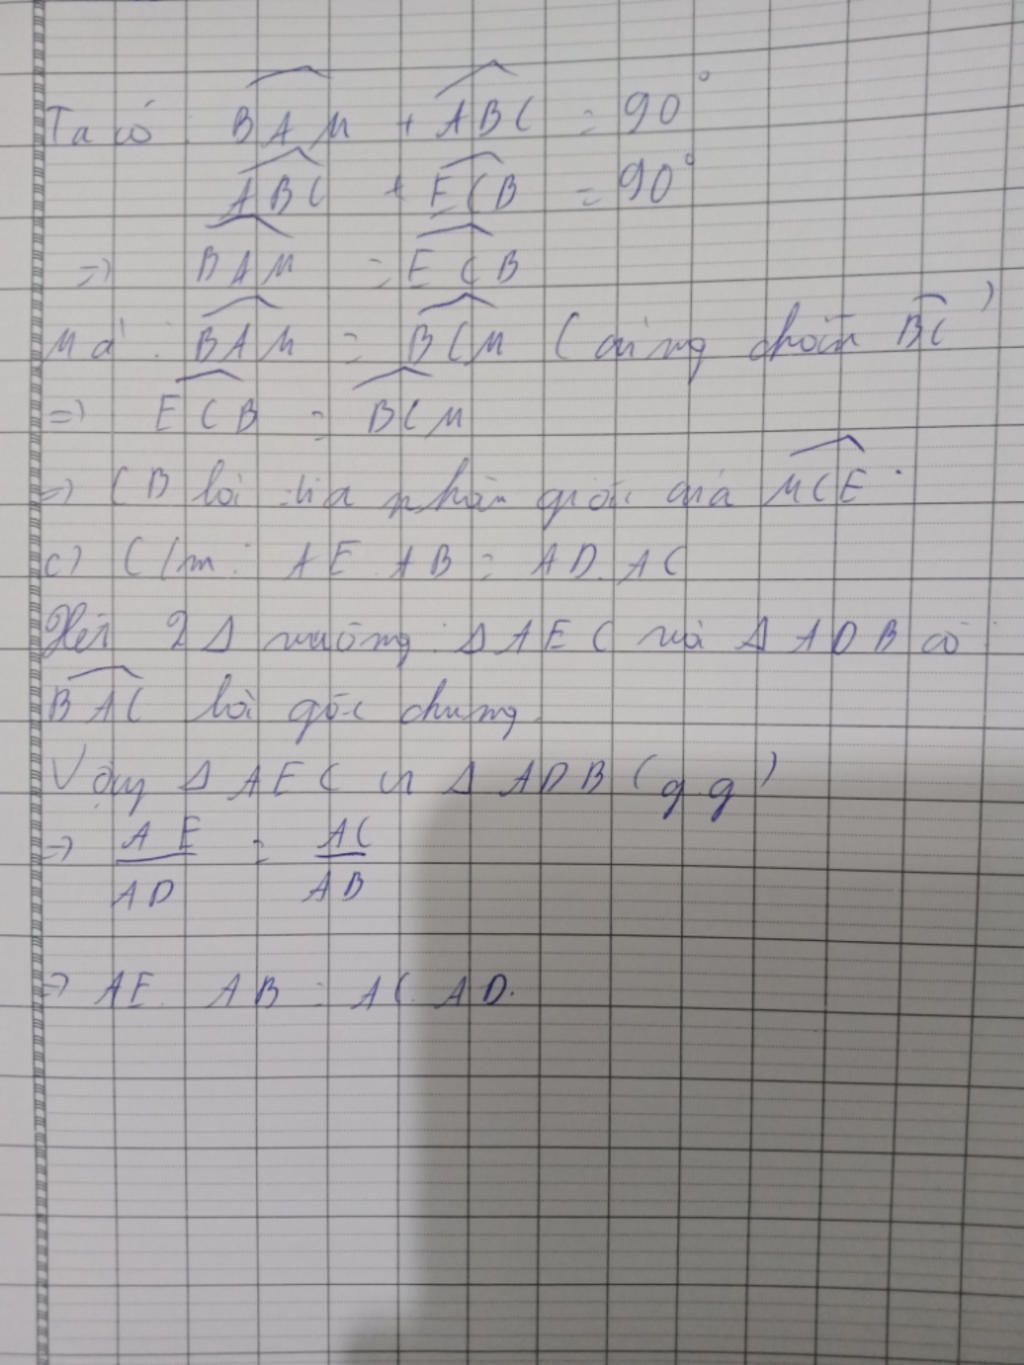 Ta có: BAM + ABC = 90°
ABC + ECB = 90°
=> BAM = ECB
Mà: BAM = BCM (cùng chắn BC)
=> ECB = BCM
=> CB là tia phân giác của MCE.
c) C/m: AE AB = AD. AC
Xét 2Δ vuông: ΔAEC và ΔADB có:
BAC là góc chung.
Vậy ΔAEC ∽ ΔADB (g.g)
=> AE/AD = AC/AB
=> AE. AB = AC. AD.